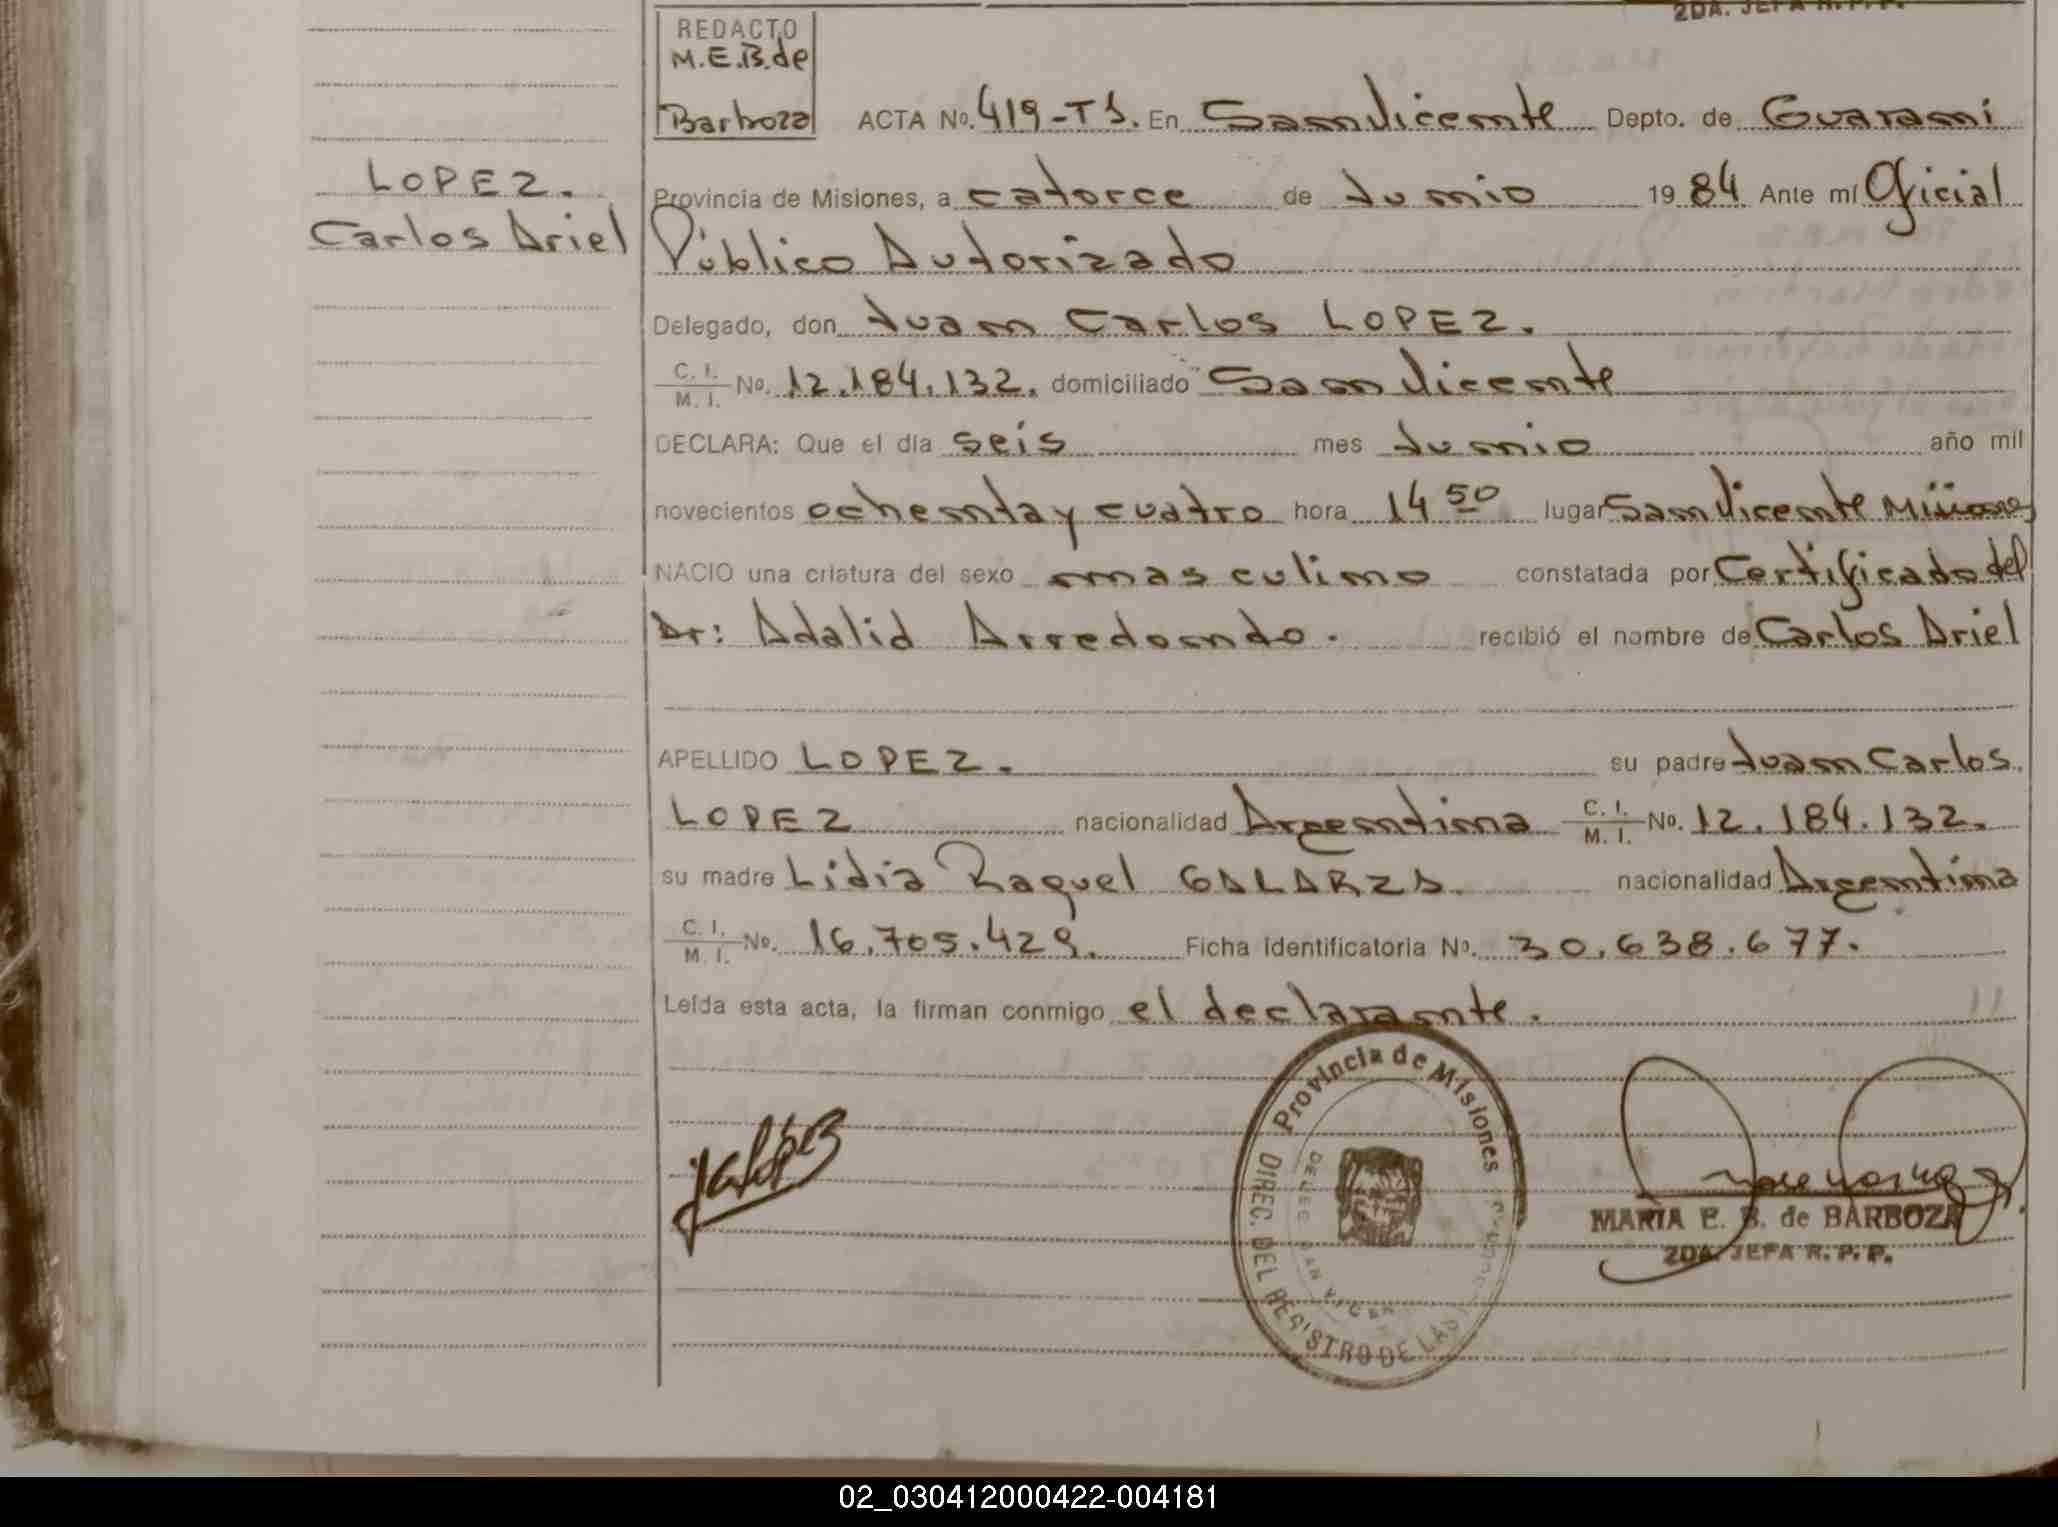 2DA. JEFA R. P. P.
REDACTO
M.E.B.de
Barboza
ACTA Nº. 419-T3. En San Vicente Depto. de Guarani
LOPEZ.
Carlos Ariel
Provincia de Misiones, a catorce de Junio 1984 Ante mí Oficial
Público Autorizado
Delegado, don Juan Carlos LOPEZ.
C. I.
M. I. Nº. 12.184.132. domiciliado San Vicente
DECLARA: Que el día seis mes Junio año mil
novecientos ochenta y cuatro hora 14 50 lugar San Vicente Misiones
NACIO una criatura del sexo masculino constatada por Certificado del
Dr: Adalid Arredondo. recibió el nombre de Carlos Ariel
APELLIDO LOPEZ. su padre Juan Carlos
LOPEZ nacionalidad Argentina C. I.
M. I. Nº. 12.184.132.
su madre Lidia Raquel GALARZA. nacionalidad Argentina
C. I.
M. I. Nº. 16.705.429. Ficha Identificatoria Nº. 30.638.677.
Leída esta acta, la firman conmigo el declarante.
Provincia de Misiones
DIREC. DEL REGISTRO DE LAS
MARIA E. B. de BARBOZA
2DA. JEFA R. P. P.
02_030412000422-004181